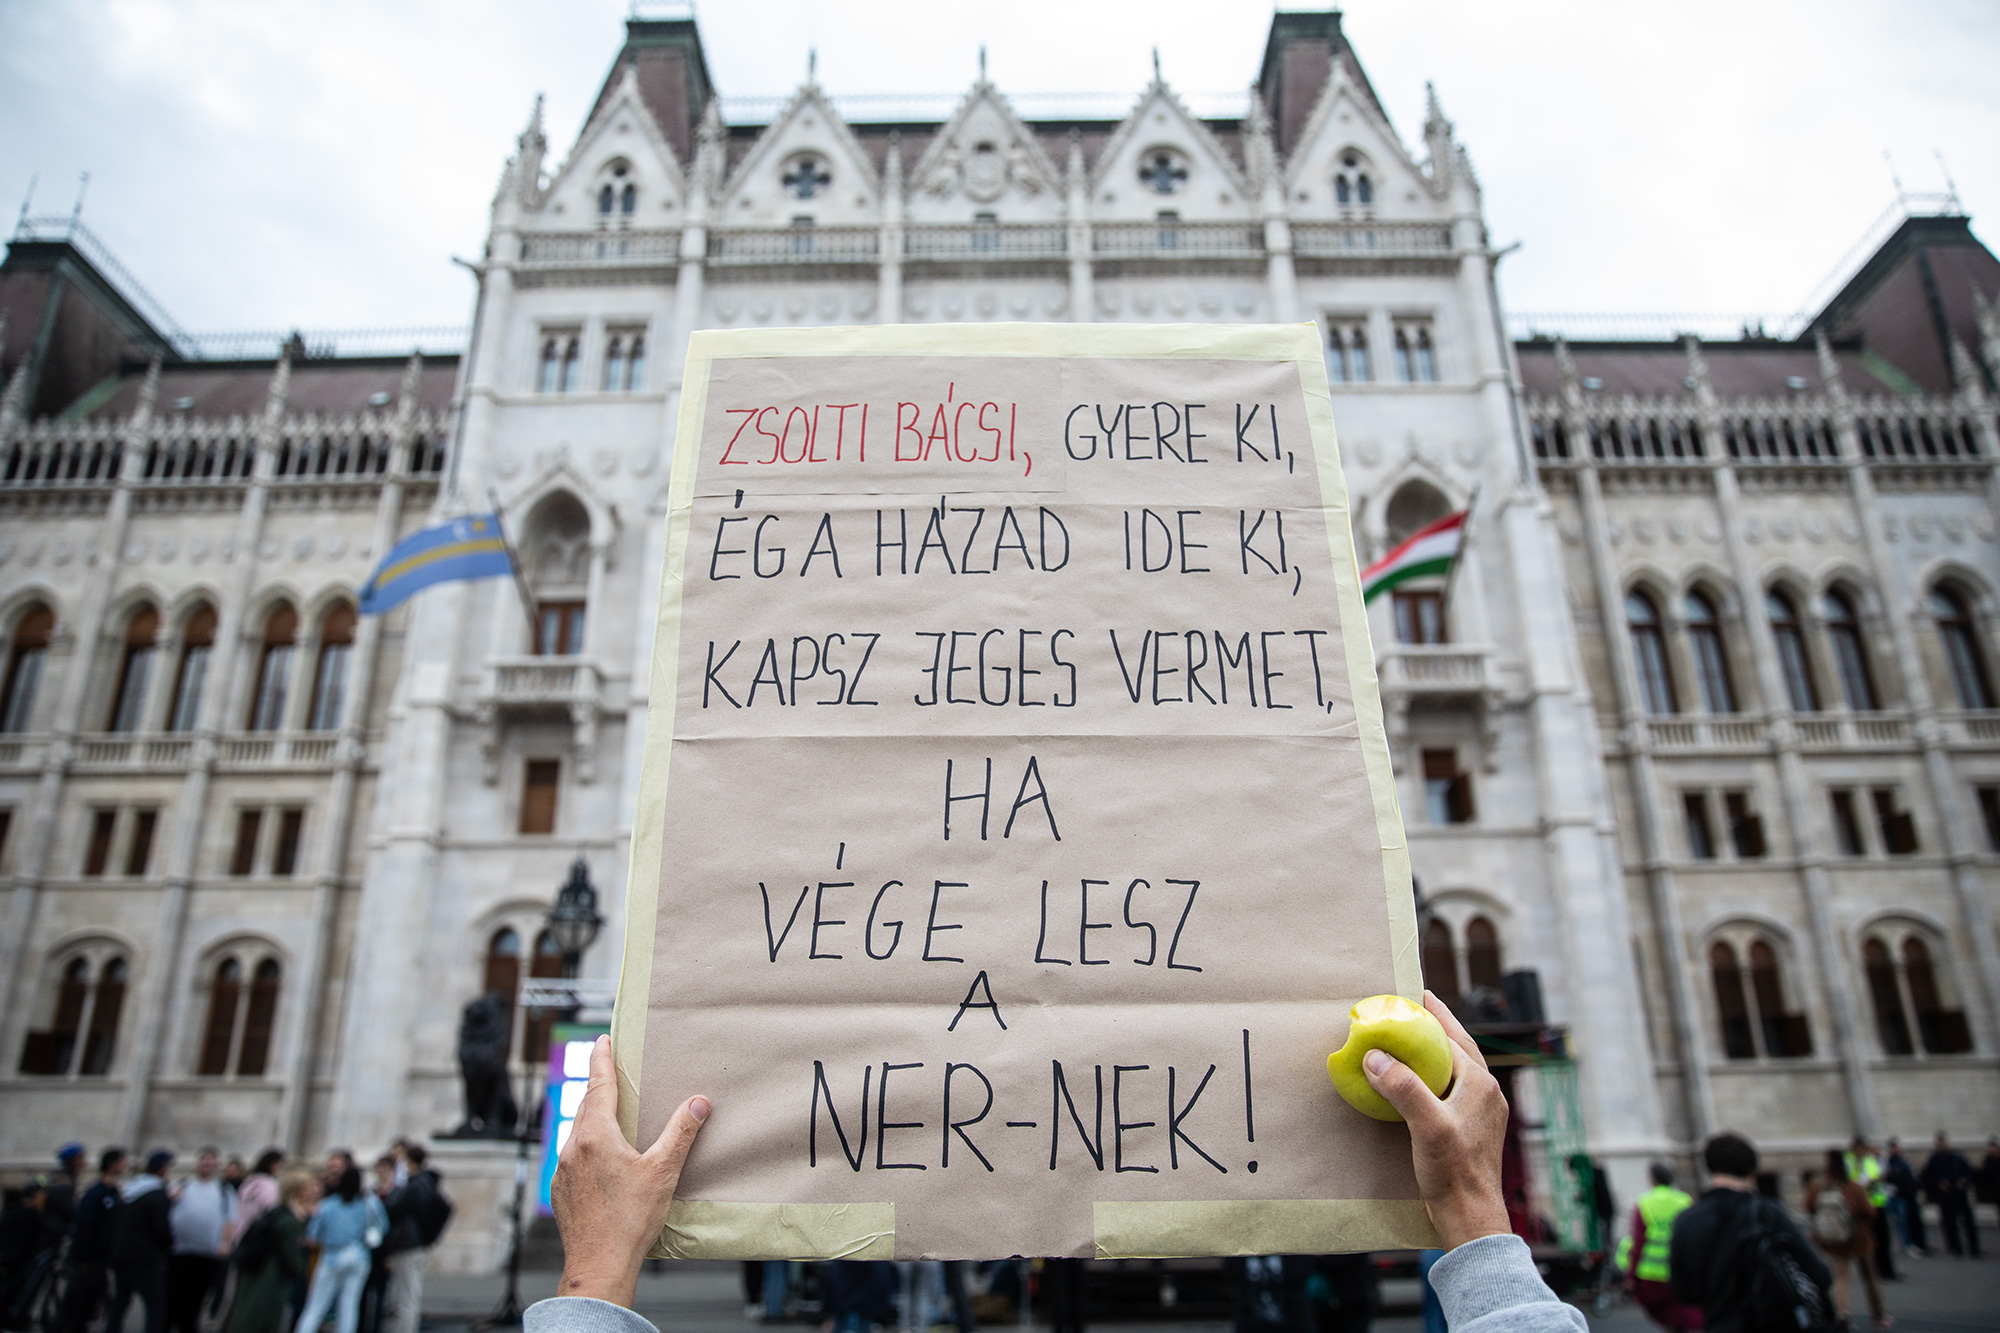 ZSOLTI BÁCSI, GYERE KI,
ÉG A HÁZAD IDE KI,
KAPSZ JEGES VERMET,
HA
VÉGE LESZ
A
NER-NEK!